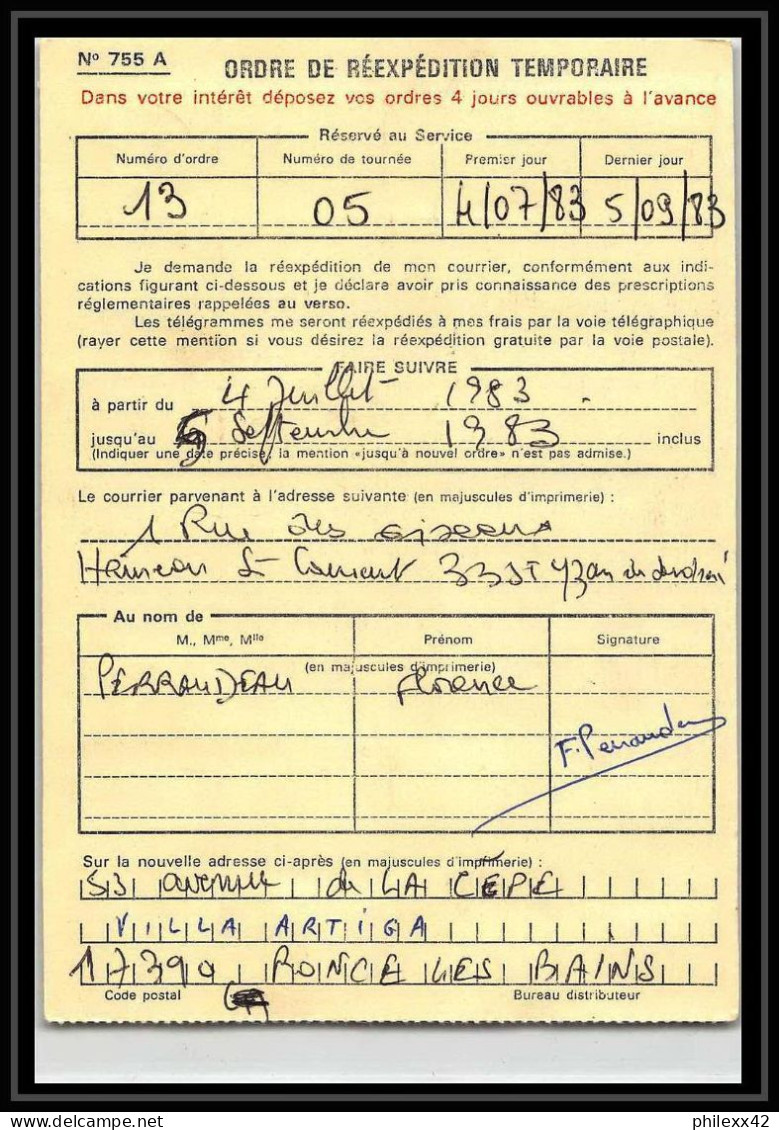 N° 755 A
ORDRE DE RÉEXPÉDITION TEMPORAIRE
Dans votre intérêt déposez vos ordres 4 jours ouvrables à l'avance
Réservé au Service
Numéro d'ordre Numéro de tournée Premier jour Dernier jour
13 05 4/07/83 5/09/83
Je demande la réexpédition de mon courrier, conformément aux indi-
cations figurant ci-dessous et je déclare avoir pris connaissance des prescriptions
réglementaires rappelées au verso.
Les télégrammes me seront réexpédiés à mes frais par la voie télégraphique
(rayer cette mention si vous désirez la réexpédition gratuite par la voie postale).
FAIRE SUIVRE
à partir du 4 Juillet 1983
jusqu'au 5 Septembre 1983 inclus
(Indiquer une date précise, la mention «jusqu'à nouvel ordre» n'est pas admise.)
Le courrier parvenant à l'adresse suivante (en majuscules d'imprimerie) :
1 Rue des oiseaux
Au nom de
M., Mme, Mlle Prénom Signature
(en majuscules d'imprimerie)
PERRAUDEAU Florence
F. Perraudeau
Sur la nouvelle adresse ci-après (en majuscules d'imprimerie) :
53 avenue de LA CÈPE
VILLA ARTIGA
17390 RONCE LES BAINS
Code postal Bureau distributeur
philexx42